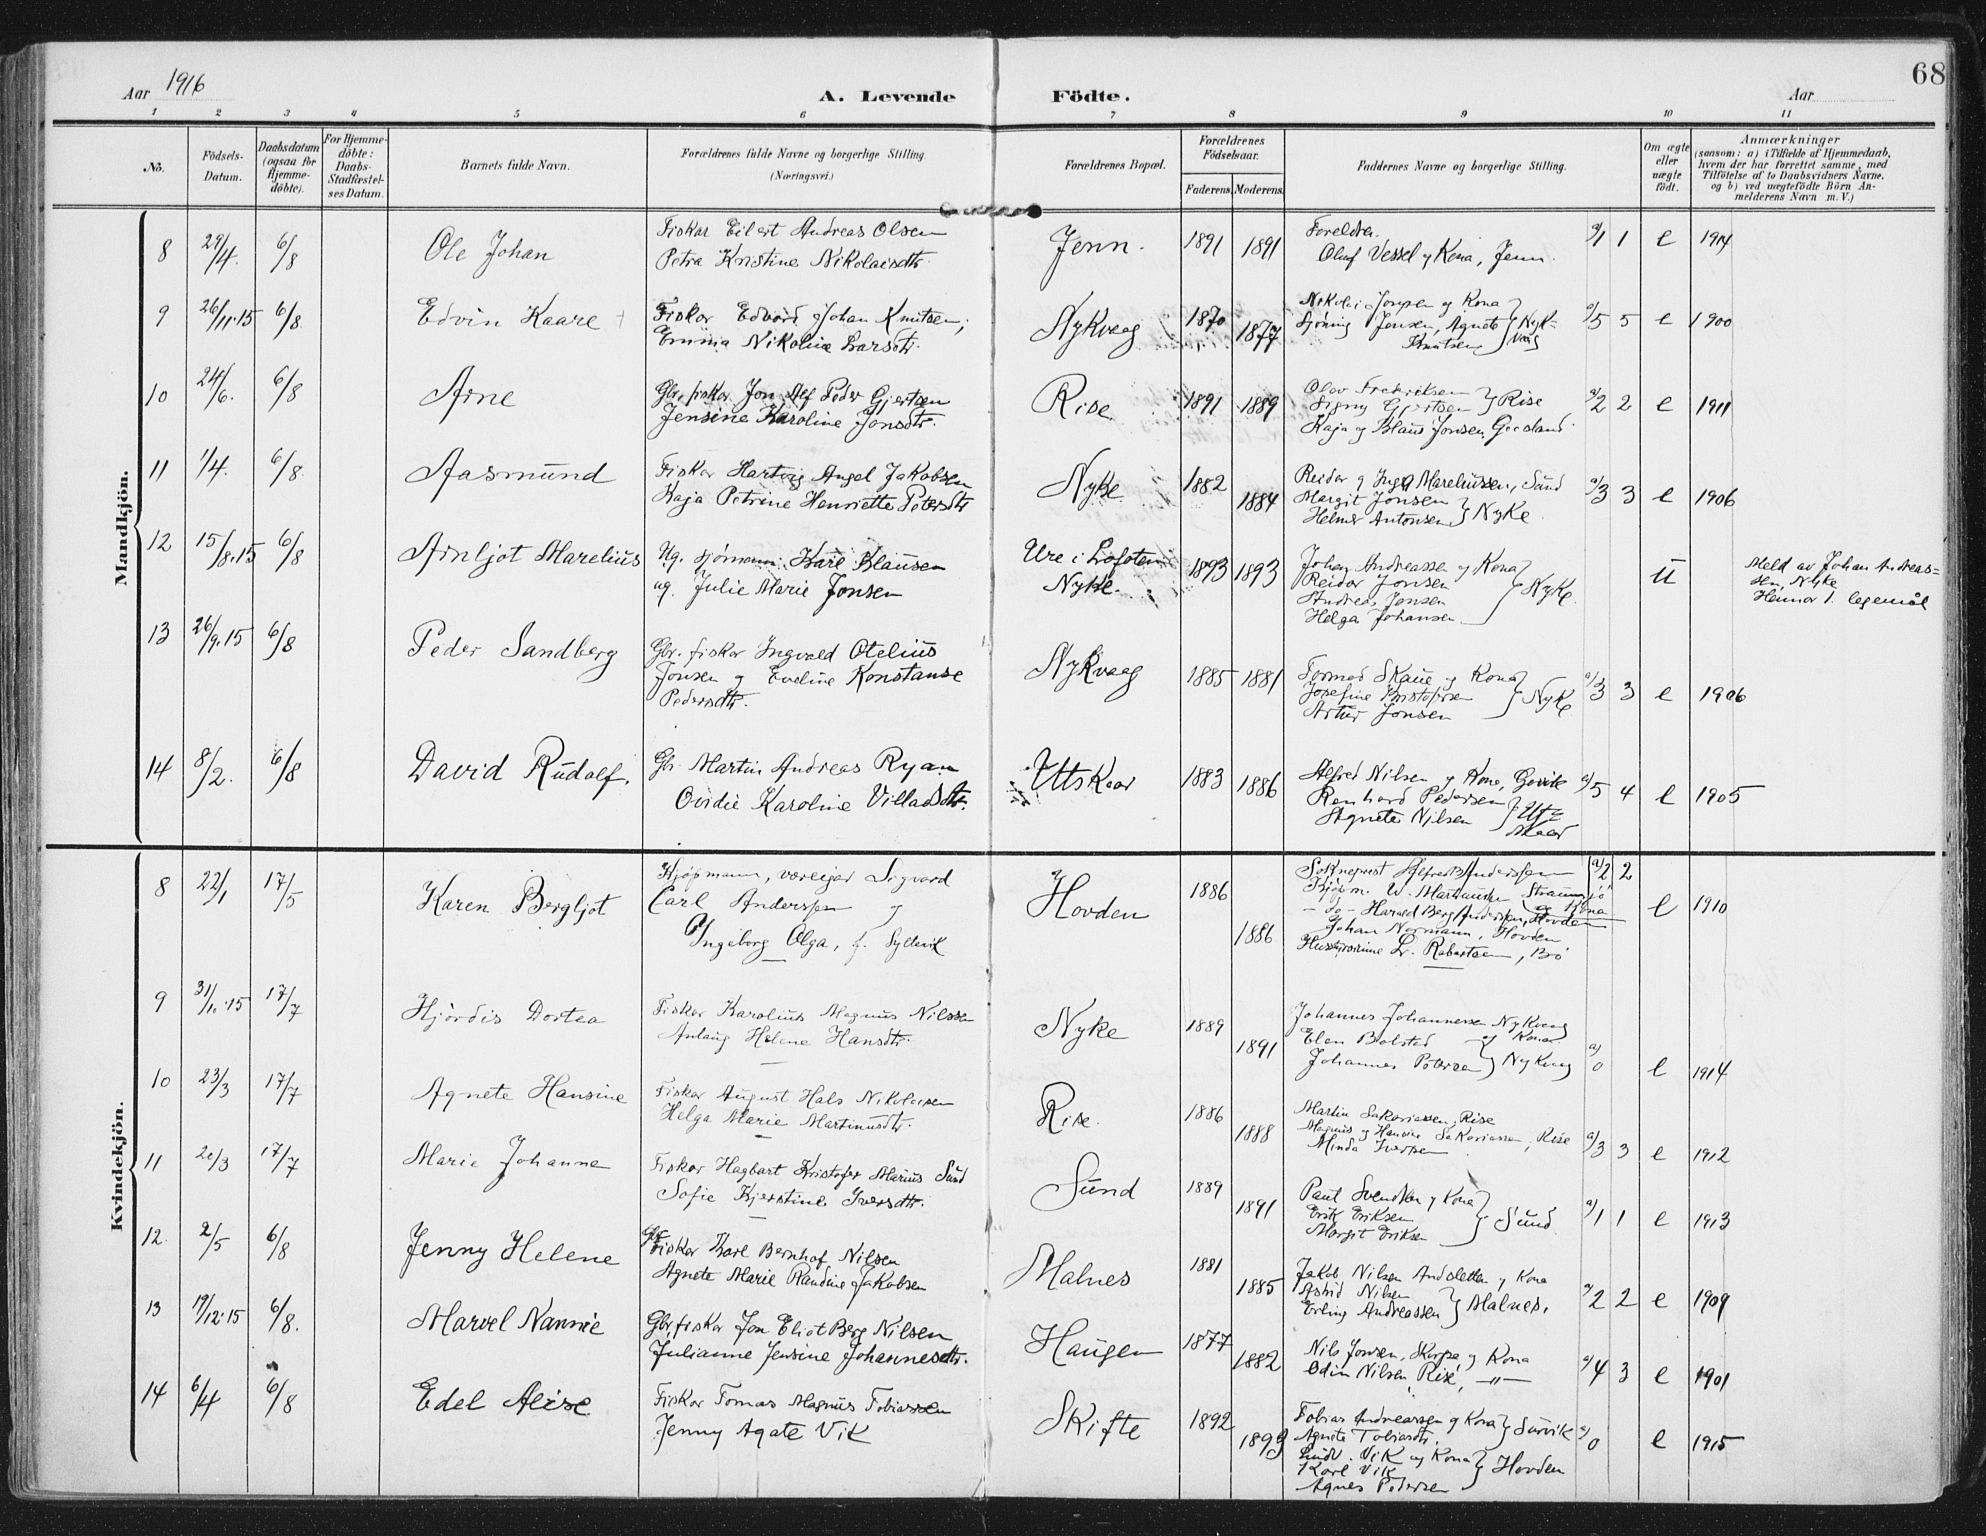 68
Aar 1916
A. Levende Födte.
Aar
1 2 3 4 5 6 7 8 9 10 11
No.
Födsels-Datum.
Daabsdatum (ogsaa for Hjemme-döbte).
For Hjemme-döbte: Daabs-Stadfæstel-ses Datum.
Barnets fulde Navn.
Forældrenes fulde Navne og borgerlige Stilling.
(Næringsvei.)
Forældrenes Bopæl.
Forældrenes Födselsaar.
Faderens. Moderens.
Faddernes Navne og borgerlige Stilling.
Om ægte eller uægte födt.
Anmærkninger
(saasom: a) i Tilfælde af Hjemmedaab,
hvem der har forrettet samme, med
Tilföielse af to Daabsvidners Navne,
og b) ved uægtefödte Börn An-
melderens Navn m. V.)
Mandkjön.
8 29/4. 6/8 Ole Johan Fisker Eilert Andreas Olsen Jenn. 1891 1891 Foreldra. a/1 1 e 1914
Petra Kristine Nikolaisdtr. Oluf Vessel og Kona, Jenn.
9 26/11.15 6/8 Edvin Kaare Fisker Edvard Johan Knutsen, Nykvaag 1870 1877 Nikolai Jensen og Kona a/5 5 e 1900
Emma Nikoline Larsdtr. Jensen, Agnete Nyk-
Knutsen vaag
10 24/6. 6/8 Arne Gbr. fisker Jon Alf Peder Gjertsen Rise 1891 1889 Olav Frederiksen a/2 2 e 1911
Jensine Karoline Jonsdtr. Signy Gjertsen Rise
Kaja og Klaus Jonsen, Gaasland
11 1/4. 6/8. Aasmund Fisker Hartvig Angel Jakobsen Nyke 1882 1884 Reidar og Inga Mareliussen, Sund a/3 3 e 1906
Kaja Petrine Henriette Petersdtr Margit Jonsen
Helmer Antonsen Nyke
12 15/8.15 6/8 Arnljot Marelius Ug. sjømann Karl Klausen Ure i Lofoten 1893 1893 Johan Andreassen og Kona u Meld. av Johan Andreas-
ug. Julie Marie Jonsen Nyke. Reidar Jonsen Nyke. sen, Nyke
Andrea Jensen legemål
Helga Johansen
13 26/9.15 6/8 Peder Sandberg Gbr. fisker Ingvald Otelius Nykvaag 1885 1881 Tormod Skaue og Kona a/3 3 e 1906
Jonsen og Eveline Konstanse Josefine Kristofersen Nyke
Pedersdtr. Artur Jonsen
14 8/2. 6/8 David Rudolf. Gbr. Martin Andreas Ryan Utskor 1883 1886 Alfred Nilsen og Kone, Govik a/5 4 e 1905
Ovidie Karoline Villadsdtr. Renhard Pedersen Ut-
Agnete Nilsen skaar
Kvindekjön.
8 22/1 17/5 Karen Bergljot Kjøpmann, væreiger Sigvard Hovden 1886 1886 Sokneprest Alfred Anderssen a/2 2 e 1910
Carl Anderssen og Kjøpm. W. Martinussen Straumsjö
Ingeborg Olga, f. Syltevik - do - Harald Berg Anderssen, Hovden og Kona
Johan Normann, Hovden
L. Robertsen, Bö
9 31/10.15 17/7 Hjördis Dortea Fisker Karolius Magnus Nilssen Nyke 1889 1891 Johannes Johannessen Nykvaag a/0 e 1914
Anlaug Helene Hansdtr. Elen Bolstad og Kona
Johannes Petersen Nykvaag
10 23/3 17/7 Agnete Hansine Fisker August Hals Nikolaisen Rise. 1886 1888 Martin Sakariassen, Rise a/3 3 e 1912
Helga Marie Martinusdtr. Magnus og Hansine Sakariassen, Rise
Minda Iversen
11 20/3 17/7 Marie Johanne Fisker Hagbart Kristofer Marius Sund Sund 1889 1891 Paul Svendsen og Kona a/1 1 e 1913
Sofie Kjerstine Iversdtr. Erik Eriksen Sund.
Margit Eriksen
12. 2/5 6/8 Jenny Helene Gbr. Fisker Karl Bernhof Nilsen Malnes 1881 1885 Jakob Nilsen og Kona a/2 2 e 1909
Agnete Marie Randine Jakobsen Astrid Nilsen
Erling Andreassen Malnes.
13 19/12.15 6/8. Marvel Nannie Gbr, fisker Jon Eliot Berg Nilsen Haugen 1877 1882 Nils Jonsen, Skorpe og Kona a/4 3 e 1901
Julianne Jensine Johannesdtr. Odin Nilsen, Rise, -"-
14 6/4 6/8 Edel Alise Fisker Tomas Magnus Tobiassen Skifte 1892 1899 Tobias Andreassen og Kona Survik a/0 e 1915
Jenny Agate Vik Agnete Tobiasdtr.
Ludv. Vik og Kona
Karl Vik Hovden
Agnes Pedersen